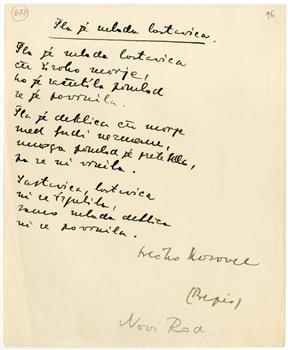 (677)
96
Šla je mlada lastavica.
Šla je mlada lastavica
čez široko morje,
ko je začutila pomlad
se je povrnila.
Šla je deklica čez morje
med ljudi neznane,
mnoga pomlad je pretekla,
pa se ni vrnila.
Lastavica, lastavica
ni se izgubila,
samo mlada deklica
ni se povrnila.
Srečko Kosovel
(Prepis)
Novi Rod